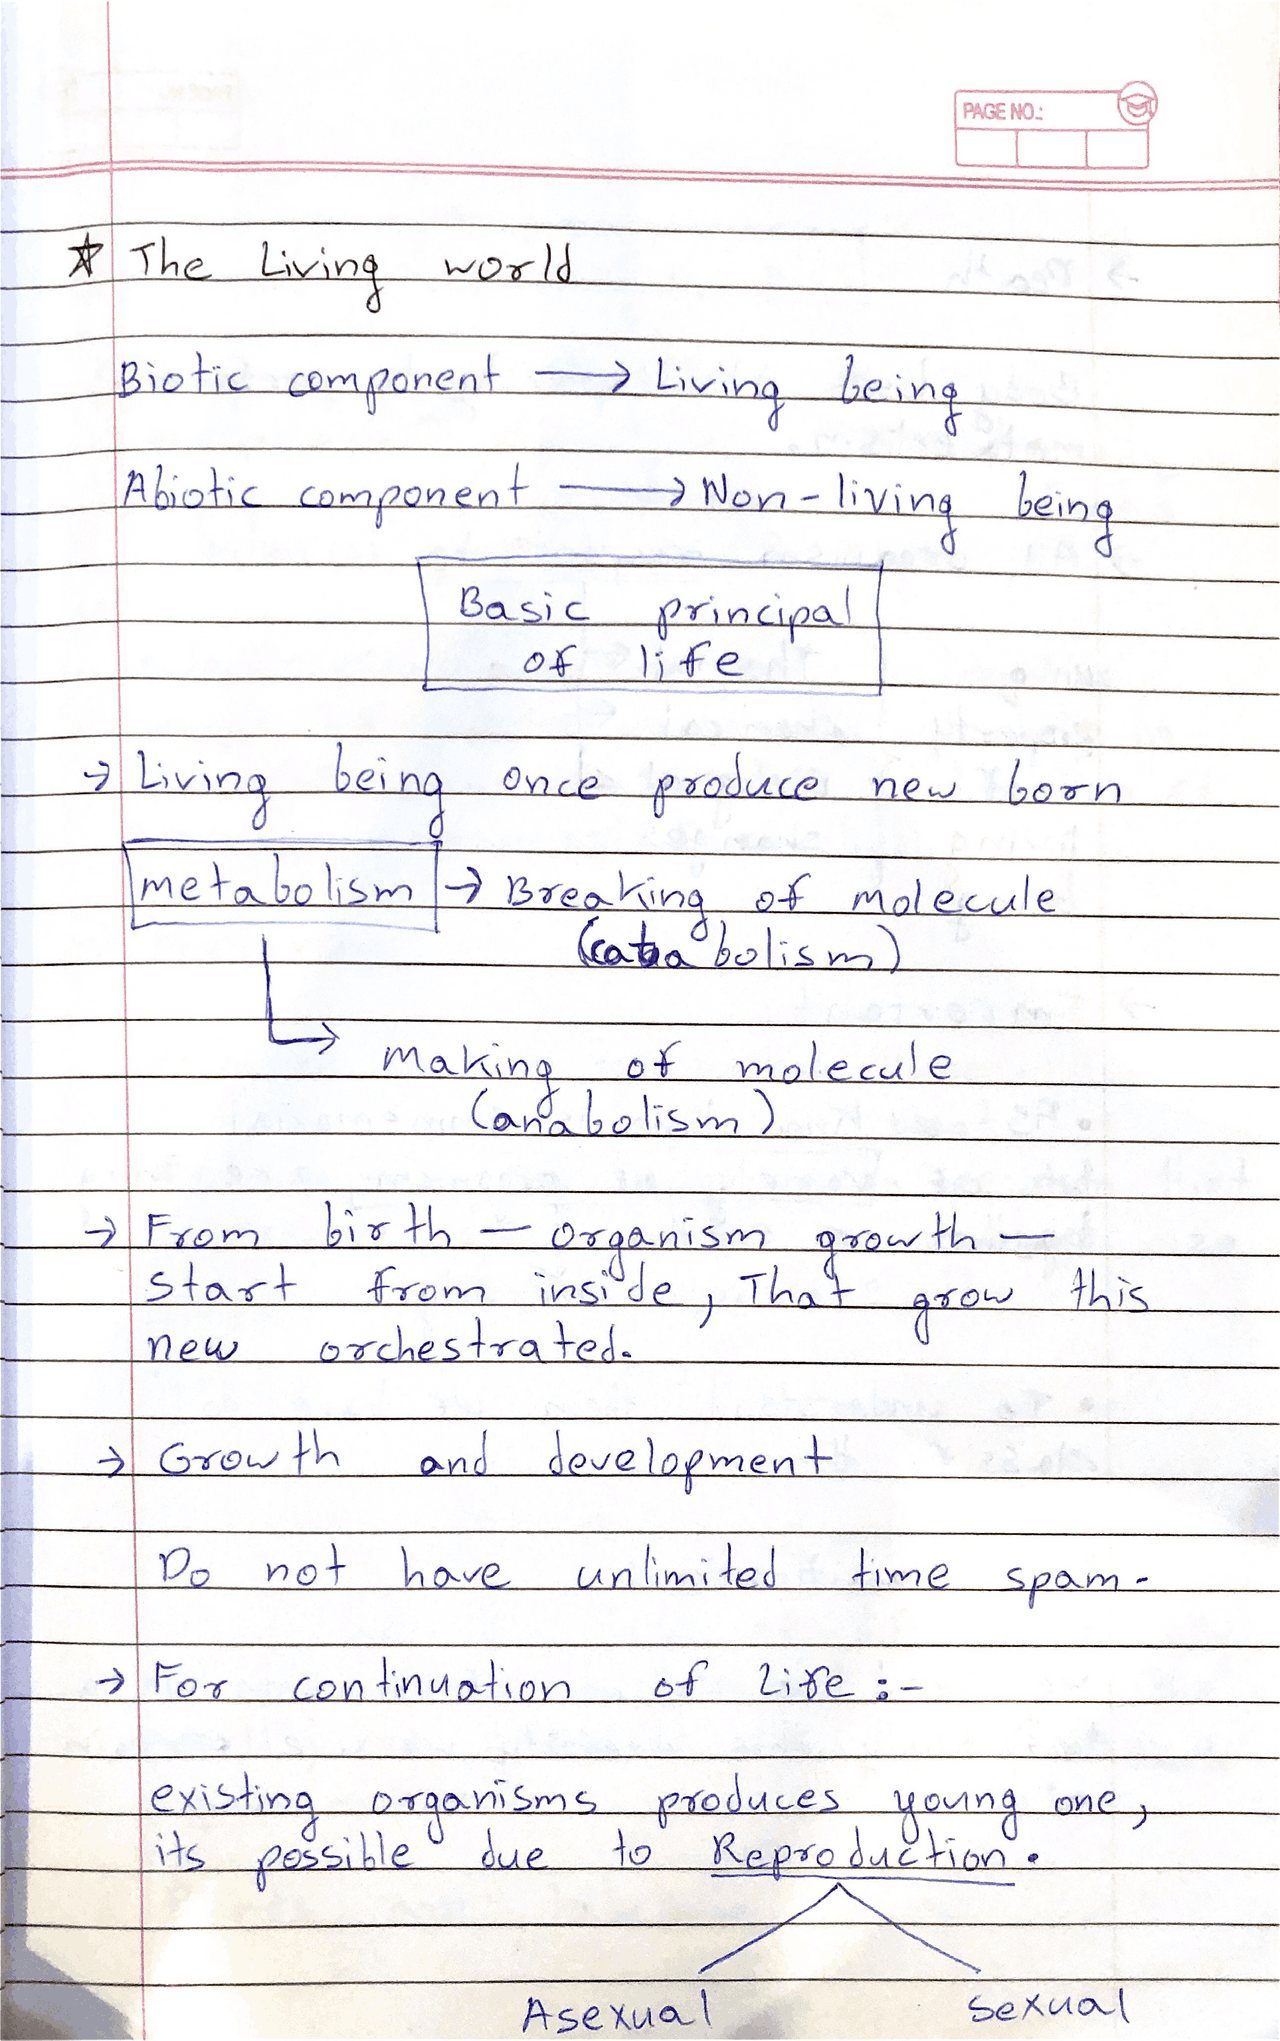 PAGE NO.:
☆ The Living world
Biotic component → Living being
Abiotic component → Non-living being
Basic principal
of life
→ Living being once produce new born
metabolism → Breaking of molecule
(catabolism)
Making of molecule
(anabolism)
→ From birth — organism growth —
start from inside, That grow this
new orchestrated.
→ Growth and development
Do not have unlimited time spam.
→ For continuation of Life :-
existing organisms produces young one,
its possible due to Reproduction.
Asexual sexual